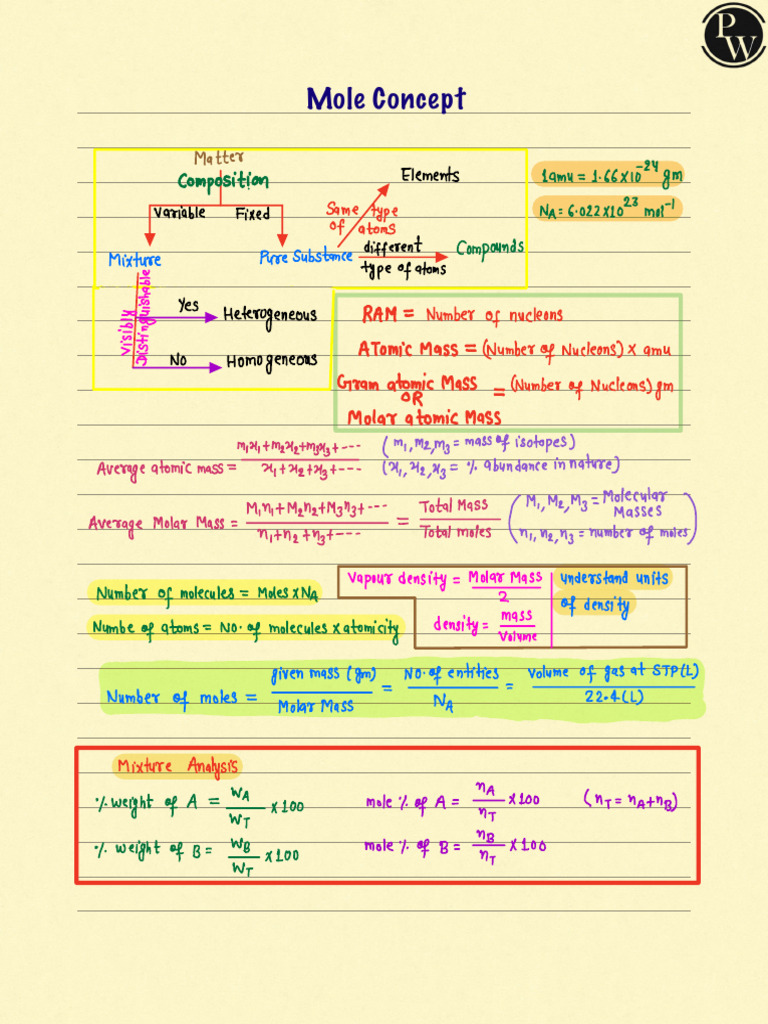 PW
Mole Concept
Matter
Composition
Variable Fixed
Mixture
Pure Substance
Same type
of atoms
Elements
different
type of atoms
Compounds
1amu = 1.66×10⁻²⁴ gm
N_A = 6.022×10²³ mol⁻¹
Visibly
Distinguishable
Yes Heterogeneous
No Homogeneous
RAM = Number of nucleons
ATomic Mass = (Number of Nucleons) × amu
Gram atomic Mass
OR
Molar atomic Mass
= (Number of Nucleons) gm
Average atomic mass = (m₁x₁+m₂x₂+m₃x₃+---)/(x₁+x₂+x₃+---)
(m₁,m₂,m₃ = mass of isotopes)
(x₁,x₂,x₃ = % abundance in nature)
Average Molar Mass = (M₁n₁+M₂n₂+M₃n₃+---)/(n₁+n₂+n₃+---) = Total Mass/Total moles
(M₁,M₂,M₃ = Molecular
Masses
n₁,n₂,n₃ = number of moles)
Number of molecules = Moles×N_A
Numbe of atoms = NO. of molecules × atomicity
Vapour density = Molar Mass/2
density = mass/Volume
understand units
of density
Number of moles = given mass (gm)/Molar Mass = NO. of entities/N_A = Volume of gas at STP(L)/22.4(L)
Mixture Analysis
% weight of A = W_A/W_T ×100
mole % of A = n_A/n_T ×100 (n_T = n_A+n_B)
% weight of B = W_B/W_T ×100
mole % of B = n_B/n_T ×100